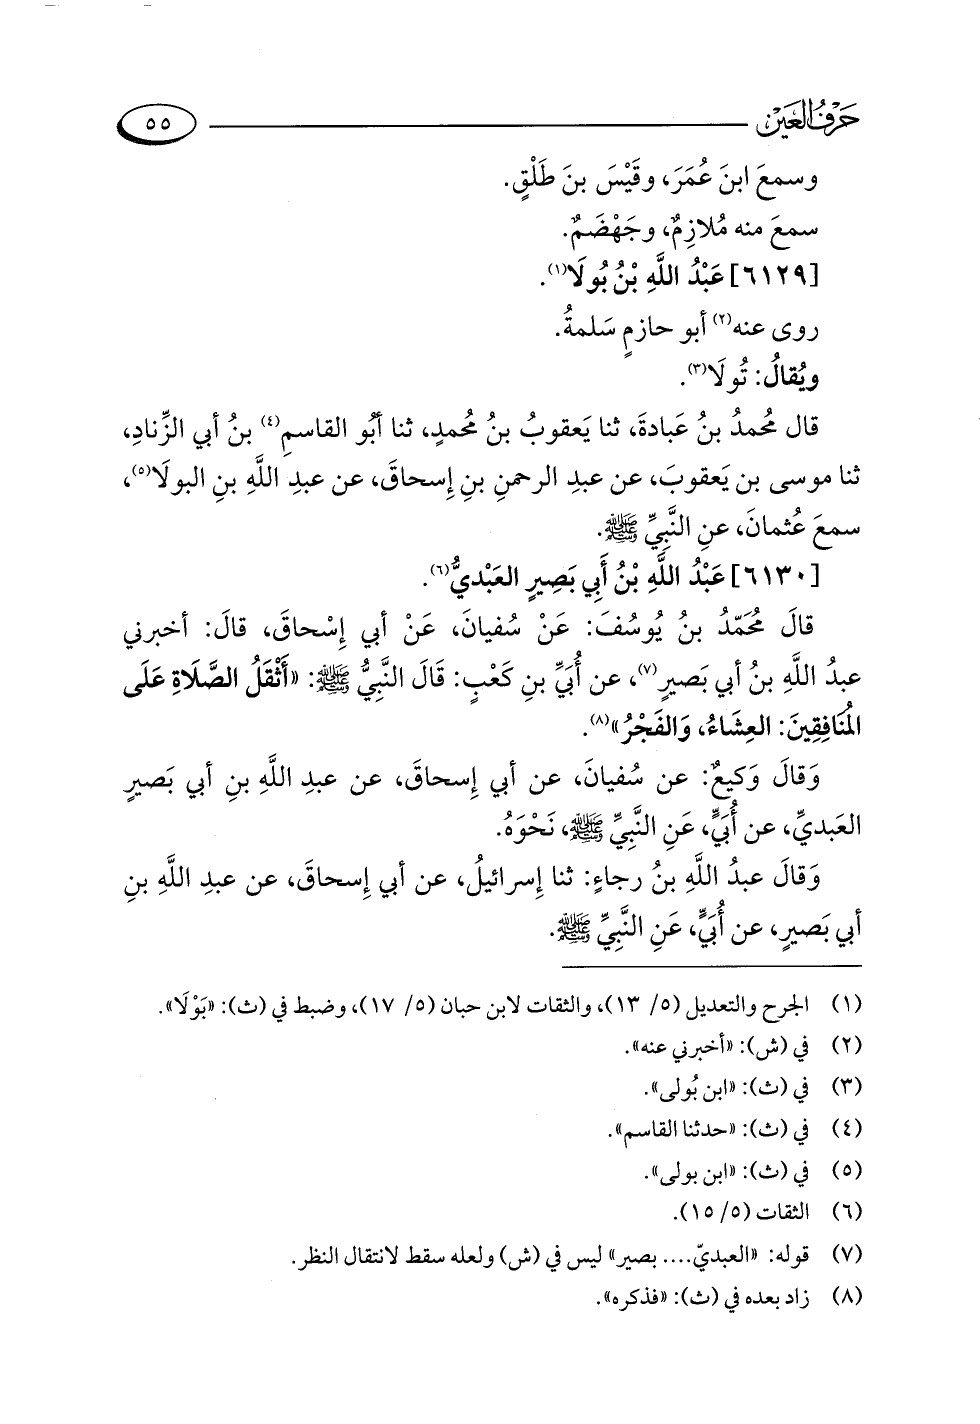 حَرْفُ العَيْن
٥٥
وسمعَ ابنَ عُمَرَ، وقَيْسَ بنَ طَلْقٍ.
سمعَ منه مُلازِمٌ، وجَهْضَمٌ.
[٦١٢٩] عَبْدُ اللَّهِ بْنُ بُولَا(١).
روى عنه(٢) أبو حازمٍ سَلمةُ.
ويُقالُ: تُولَا(٣).
قال مُحمدُ بنُ عَبادةَ، ثنا يَعقوبُ بنُ مُحمدٍ، ثنا أبُو القاسمِ(٤) بنُ أبي الزِّنادِ،
ثنا موسى بن يَعقوبَ، عن عبدِ الرحمنِ بنِ إسحاقَ، عن عبدِ اللَّهِ بنِ البولَا(٥)،
سمعَ عُثمانَ، عنِ النَّبِيِّ ﷺ.
[٦١٣٠] عَبْدُ اللَّهِ بْنُ أَبِي بَصِيرٍ العَبْديُّ(٦).
قالَ مُحَمّدُ بنُ يُوسُفَ: عَنْ سُفيانَ، عَنْ أبي إسْحاقَ، قالَ: أخبرني
عبدُ اللَّهِ بنُ أبي بَصيرٍ(٧)، عن أُبَيِّ بنِ كَعْبٍ: قَالَ النَّبِيُّ ﷺ: «أَثْقَلُ الصَّلَاةِ عَلَى
المُنَافِقِينَ: العِشَاءُ، وَالفَجْرُ»(٨).
وَقالَ وَكيعٌ: عن سُفيانَ، عن أبي إسحاقَ، عن عبدِ اللَّهِ بنِ أبي بَصيرٍ
العَبديِّ، عن أُبَيٍّ، عَنِ النَّبِيِّ ﷺ، نَحْوَهُ.
وَقالَ عبدُ اللَّهِ بنُ رجاءٍ: ثنا إسرائيلُ، عن أبي إسحاقَ، عن عبدِ اللَّهِ بنِ
أبي بَصيرٍ، عن أُبَيٍّ، عَنِ النَّبِيِّ ﷺ.
(١) الجرح والتعديل (٥/ ١٣)، والثقات لابن حبان (٥/ ١٧)، وضبط في (ث): «بَوْلَا».
(٢) في (ش): «أخبرني عنه».
(٣) في (ث): «ابن بُولى».
(٤) في (ث): «حدثنا القاسم».
(٥) في (ث): «ابن بولى».
(٦) الثقات (٥/ ١٥).
(٧) قوله: «العبديّ.... بصير» ليس في (ش) ولعله سقط لانتقال النظر.
(٨) زاد بعده في (ث): «فذكره».